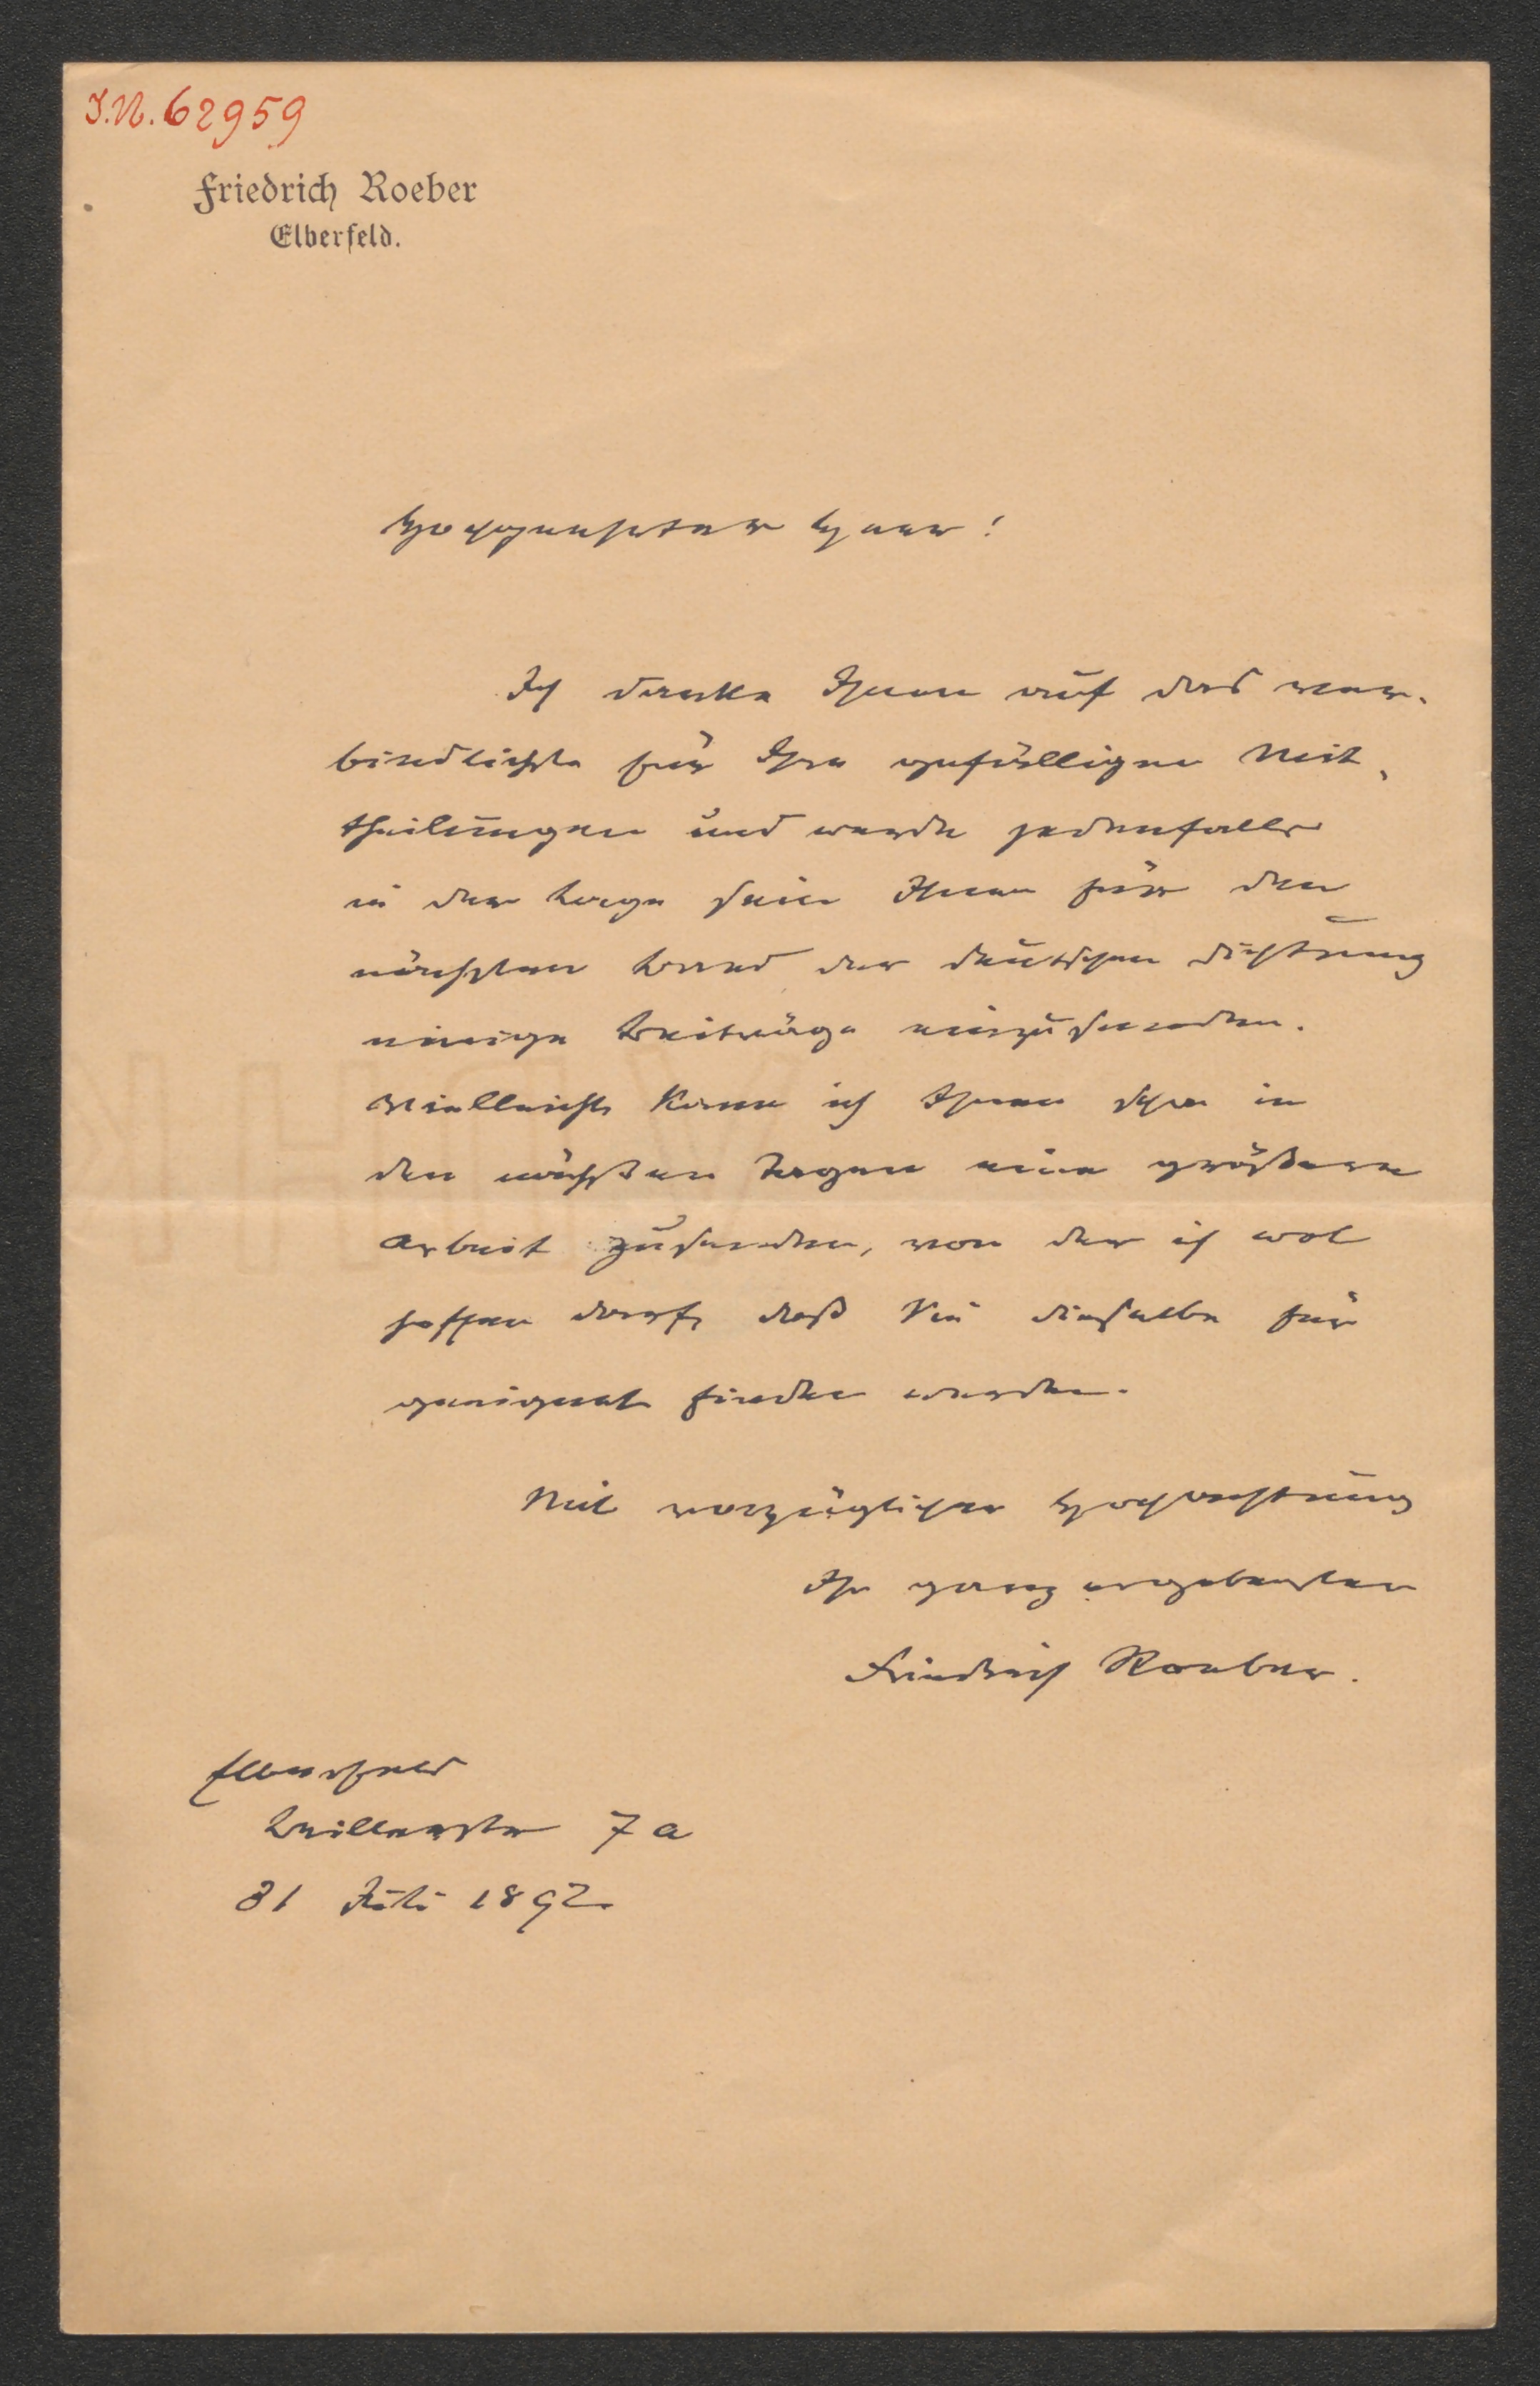 J.N. 62959
Friedrich Roeber
Elberfeld.
Hochgeehrter Herr!
Ich danke Ihnen auf das ver-
bindlichste für Ihre gefälligen Mit-
theilungen und werde jedenfalls
in der Lage sein Ihnen für den
nächsten Band der deutschen Dichtung
einige Beiträge einzusenden.
Vielleicht kann ich Ihnen schon in
den nächsten Tagen eine größere
Arbeit zusenden, von der ich wol
hoffen darf, daß Sie dieselbe für
geeignet finden werden.
Mit vorzüglicher Hochachtung
Ihr ganz ergebenster
Friedrich Roeber.
Elberfeld
7a
31 Juli 1892